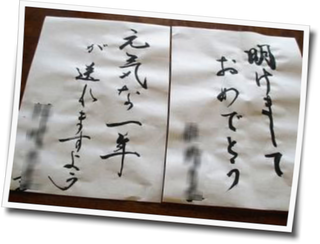 明けまして
おめでとう
元気な一年
が送れますよう